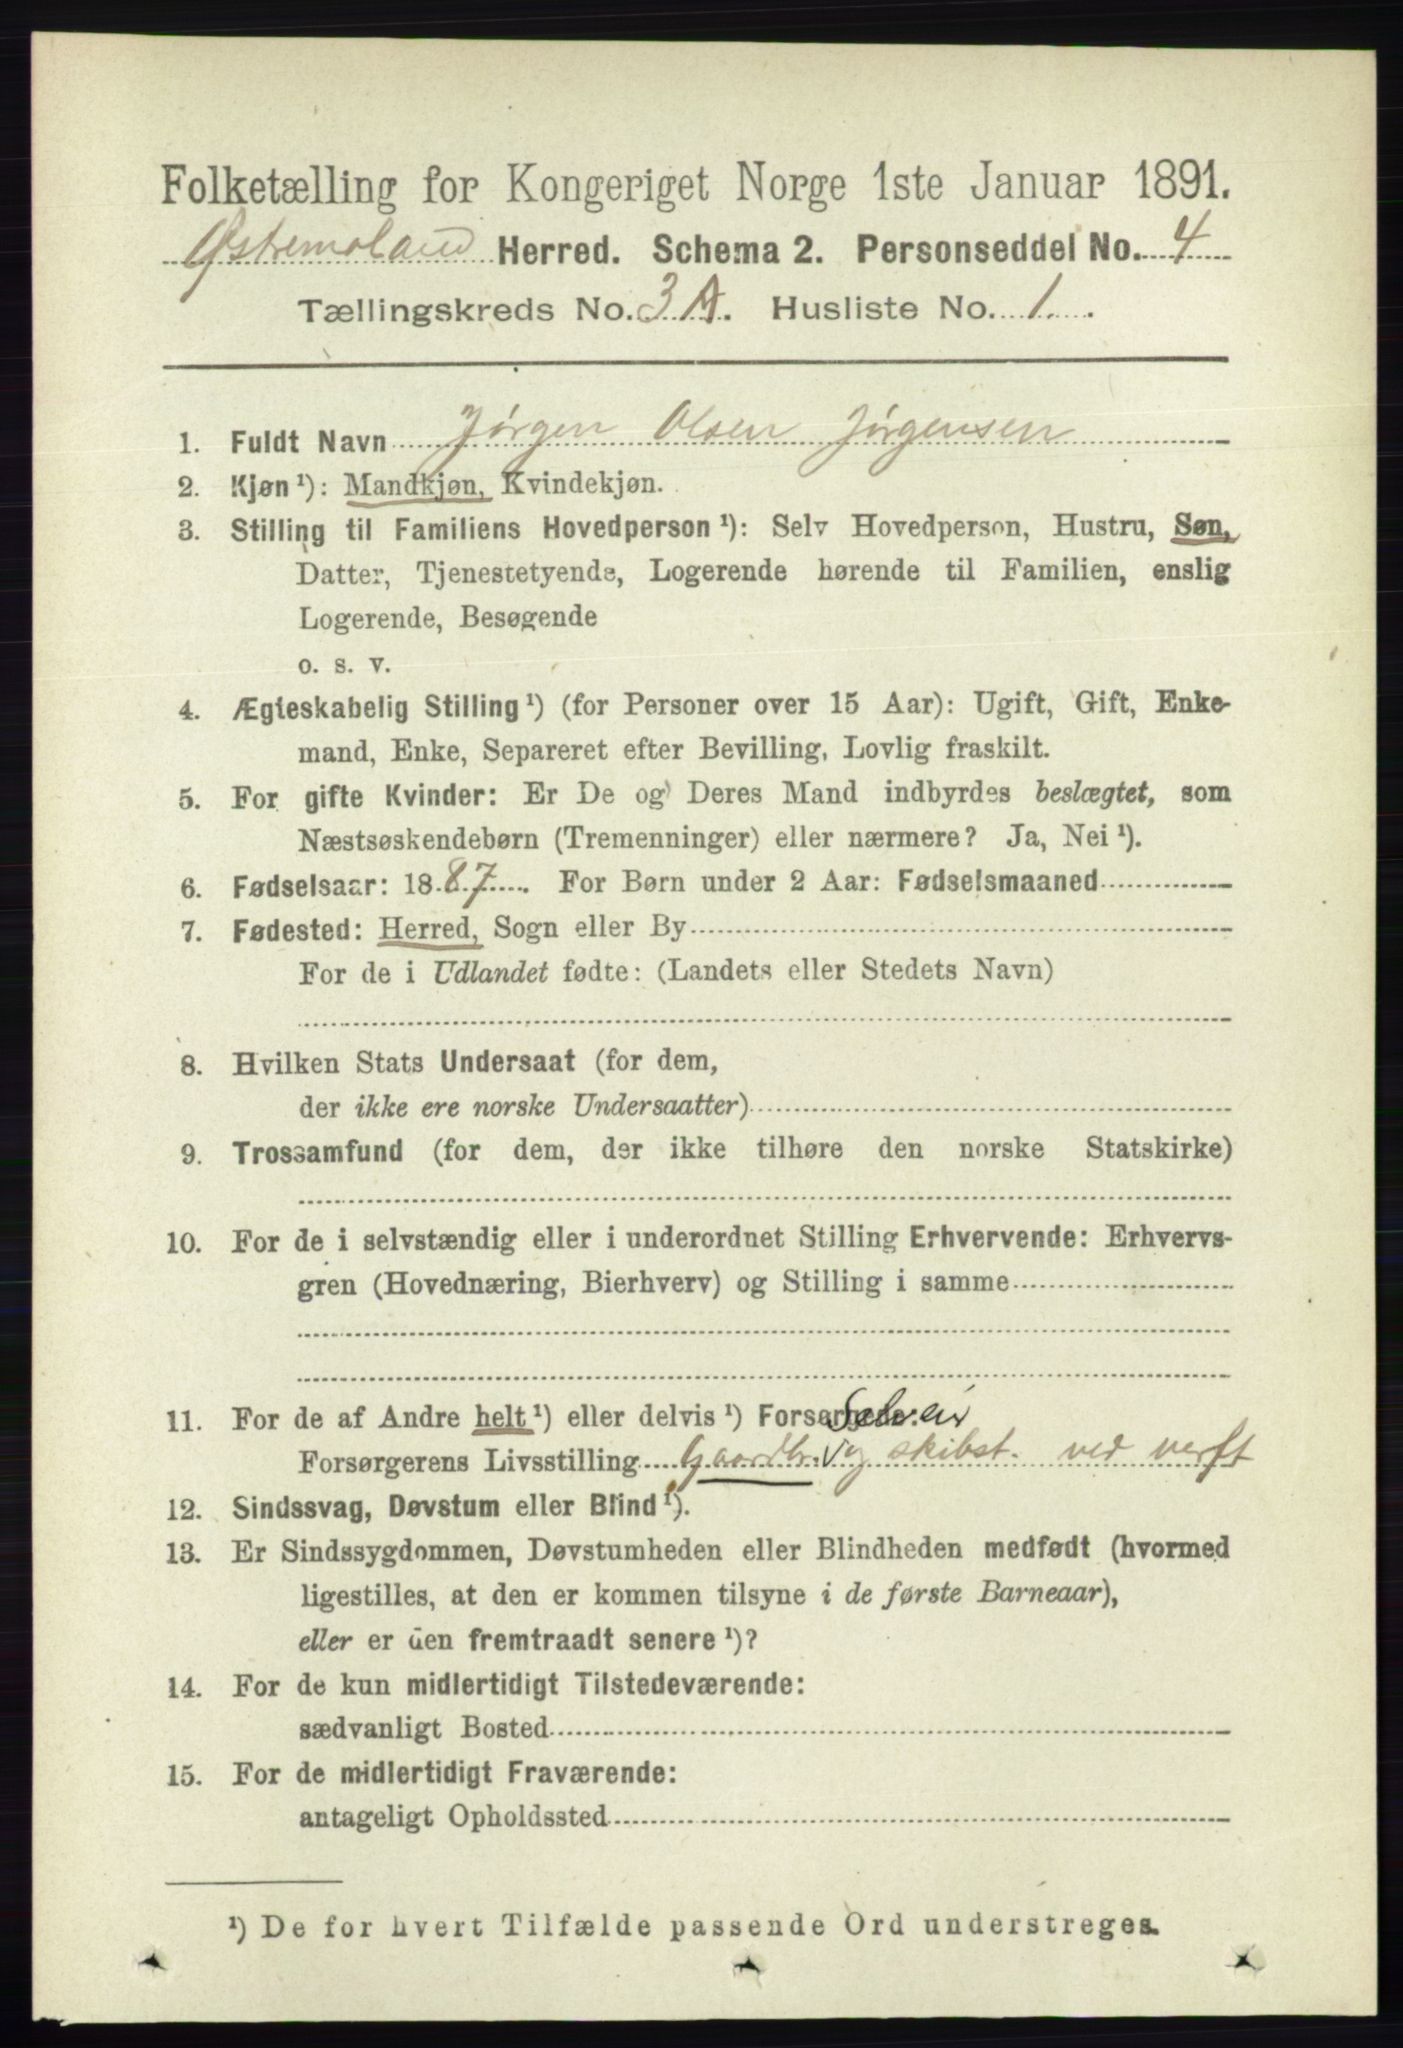 Folketælling for Kongeriget Norge 1ste Januar 1891.
Østremoland Herred. Schema 2. Personseddel No. 4
Tællingskreds No. 3A. Husliste No. 1.
1. Fuldt Navn Jørgen Olsen Jørgensen
2. Kjøn ¹): Mandkjøn, Kvindekjøn.
3. Stilling til Familiens Hovedperson ¹): Selv Hovedperson, Hustru, Søn,
Datter, Tjenestetyende, Logerende hørende til Familien, enslig
Logerende, Besøgende
o. s. v.
4. Ægteskabelig Stilling ¹) (for Personer over 15 Aar): Ugift, Gift, Enke-
mand, Enke, Separeret efter Bevilling, Lovlig fraskilt.
5. For gifte Kvinder: Er De og Deres Mand indbyrdes beslægtet, som
Næstsøskendebørn (Tremenninger) eller nærmere? Ja, Nei ¹).
6. Fødselsaar: 1887. For Børn under 2 Aar: Fødselsmaaned
7. Fødested: Herred, Sogn eller By
For de i Udlandet fødte: (Landets eller Stedets Navn)
8. Hvilken Stats Undersaat (for dem,
der ikke ere norske Undersaatter)
9. Trossamfund (for dem, der ikke tilhøre den norske Statskirke)
10. For de i selvstændig eller i underordnet Stilling Erhvervende: Erhvervs-
gren (Hovednæring, Bierhverv) og Stilling i samme
11. For de af Andre helt ¹) eller delvis ¹) Forsørgede: Selveier
Forsørgerens Livsstilling Gaardbr. og skibst. ved verft
12. Sindssvag, Døvstum eller Blind ¹).
13. Er Sindssygdommen, Døvstumheden eller Blindheden medfødt (hvormed
ligestilles, at den er kommen tilsyne i de første Barneaar),
eller er den fremtraadt senere ¹)?
14. For de kun midlertidigt Tilstedeværende:
sædvanligt Bosted
15. For de midlertidigt Fraværende:
antageligt Opholdssted
¹) De for hvert Tilfælde passende Ord understreges.